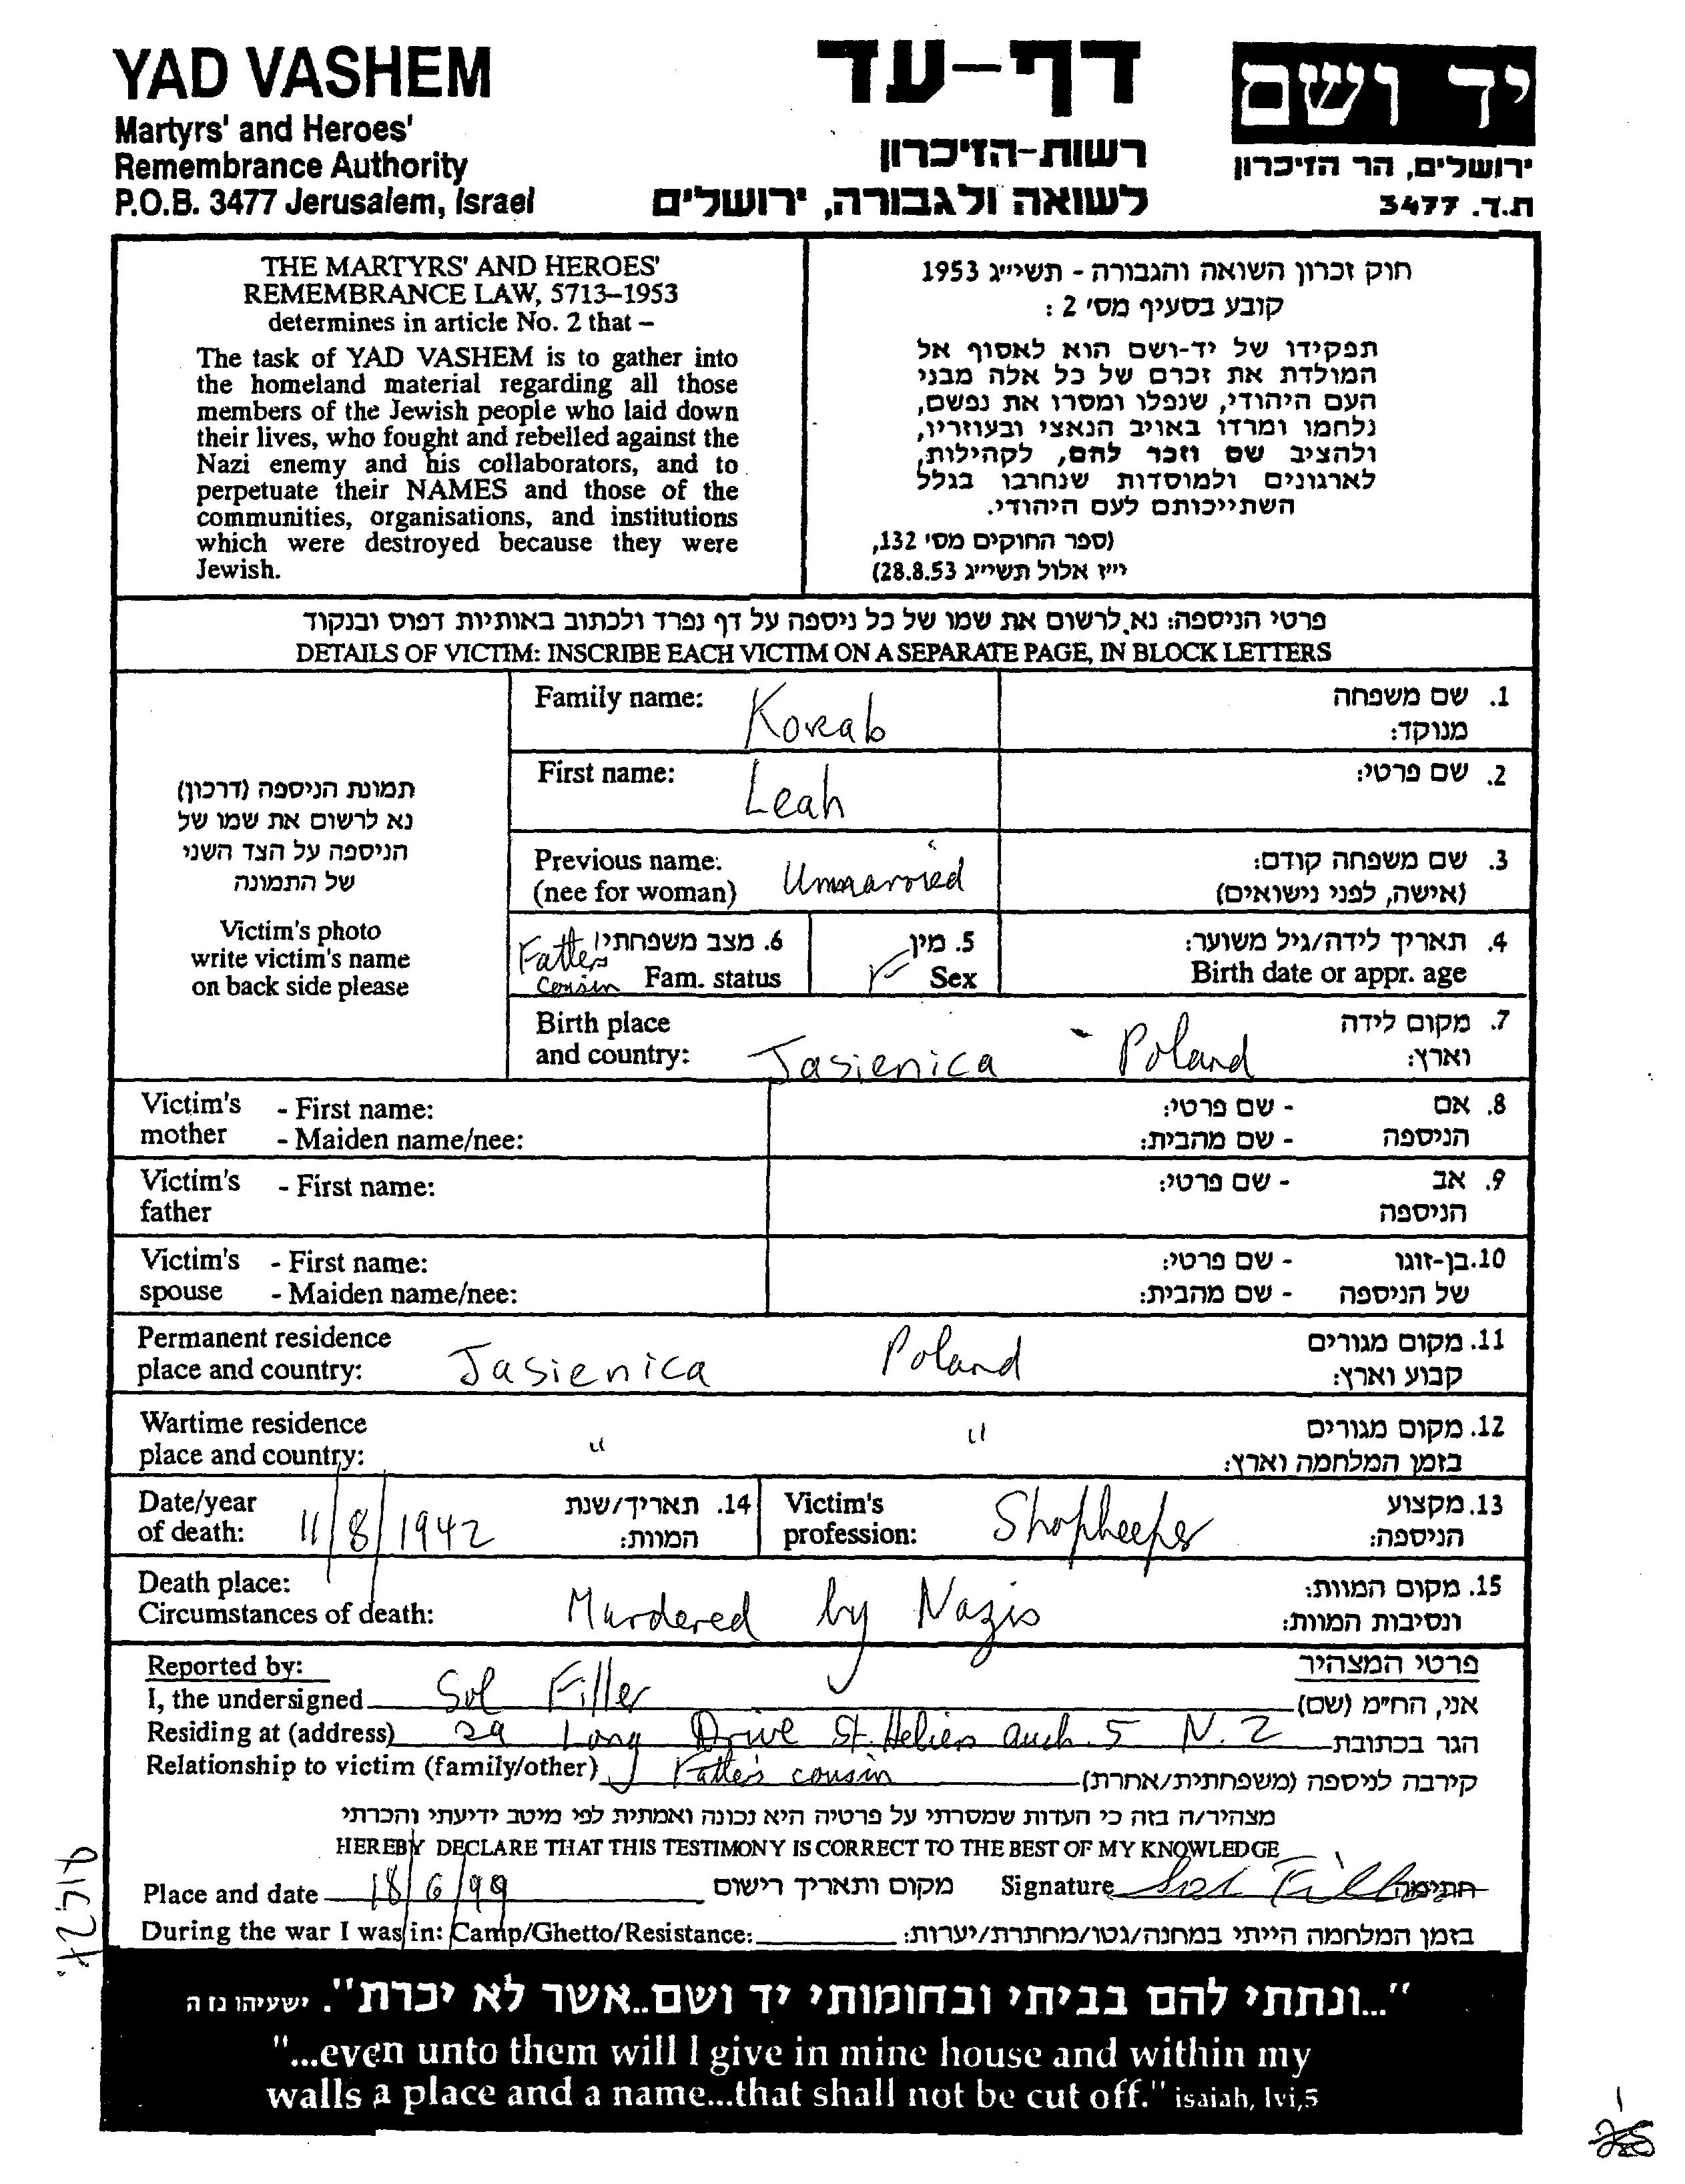 YAD VASHEM
Martyrs' and Heroes'
Remembrance Authority
P.O.B. 3477 Jerusalem, Israel
דף-עד
רשות-הזיכרון
לשואה ולגבורה, ירושלים
יד ושם
ירושלים, הר הזיכרון
ת.ד. 3477
THE MARTYRS' AND HEROES'
REMEMBRANCE LAW, 5713–1953
determines in article No. 2 that –
The task of YAD VASHEM is to gather into
the homeland material regarding all those
members of the Jewish people who laid down
their lives, who fought and rebelled against the
Nazi enemy and his collaborators, and to
perpetuate their NAMES and those of the
communities, organisations, and institutions
which were destroyed because they were
Jewish.
חוק זכרון השואה והגבורה - תשי״ג 1953
קובע בסעיף מס׳ 2 :
תפקידו של יד-ושם הוא לאסוף אל
המולדת את זכרם של כל אלה מבני
העם היהודי, שנפלו ומסרו את נפשם,
נלחמו ומרדו באויב הנאצי ובעוזריו,
ולהציב שם וזכר להם, לקהילות,
לארגונים ולמוסדות שנחרבו בגלל
השתייכותם לעם היהודי.
(ספר החוקים מס׳ 132,
י״ז אלול תשי״ג 28.8.53)
פרטי הניספה: נא לרשום את שמו של כל ניספה על דף נפרד ולכתוב באותיות דפוס ובנקוד
DETAILS OF VICTIM: INSCRIBE EACH VICTIM ON A SEPARATE PAGE, IN BLOCK LETTERS
תמונת הניספה (דרכון)
נא לרשום את שמו של
הניספה על הצד השני
של התמונה
Victim's photo
write victim's name
on back side please
Family name: Korab 1. שם משפחה
מנוקד:
First name: Leah 2. שם פרטי:
Previous name: Unmarried 3. שם משפחה קודם:
(nee for woman) (אישה, לפני נישואים)
Father's cousin 6. מצב משפחתי 5. מין 4. תאריך לידה/גיל משוער:
Fam. status F Sex Birth date or appr. age
Birth place 7. מקום לידה
and country: Jasienica - Poland וארץ:
Victim's - First name: - שם פרטי: 8. אם
mother - Maiden name/nee: - שם מהבית: הניספה
Victim's - First name: - שם פרטי: 9. אב
father הניספה
Victim's - First name: - שם פרטי: 10. בן-זוגו
spouse - Maiden name/nee: - שם מהבית: של הניספה
Permanent residence 11. מקום מגורים
place and country: Jasienica Poland קבוע וארץ:
Wartime residence 12. מקום מגורים
place and country: " " בזמן המלחמה וארץ:
Date/year 14. תאריך/שנת Victim's 13. מקצוע
of death: 11/8/1942 המוות: profession: Shopkeeper הניספה:
Death place: 15. מקום המוות:
Circumstances of death: Murdered by Nazis ונסיבות המוות:
Reported by: פרטי המצהיר
I, the undersigned Sol Filler אני, הח״מ (שם)
Residing at (address) 29 Long Drive St. Heliers Auck. 5 N.Z הגר בכתובת
Relationship to victim (family/other) Father's cousin קירבה לניספה (משפחתית/אחרת)
מצהיר/ה בזה כי העדות שמסרתי על פרטיה היא נכונה ואמתית לפי מיטב ידיעתי והכרתי
HEREBY DECLARE THAT THIS TESTIMONY IS CORRECT TO THE BEST OF MY KNOWLEDGE
Place and date 18/6/99 מקום ותאריך רישום Signature Sol Filler חתימה
During the war I was in: Camp/Ghetto/Resistance: בזמן המלחמה הייתי במחנה/גטו/מחתרת/יערות:
"...ונתתי להם בביתי ובחומותי יד ושם..אשר לא יכרת". ישעיהו נו ה
"...even unto them will I give in mine house and within my
walls a place and a name...that shall not be cut off." isaiah, lvi,5